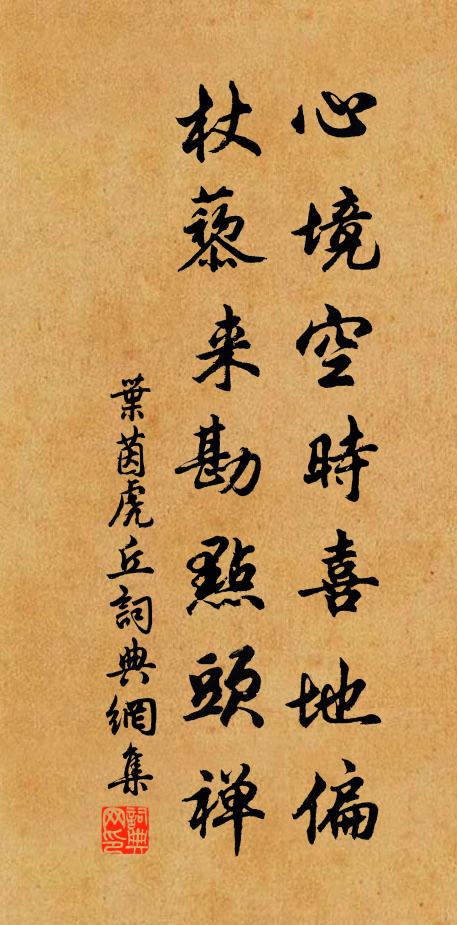 心境空時喜地偏
杖藜来勘點頭禅
葉茵虎丘詞典網集
詞典网印